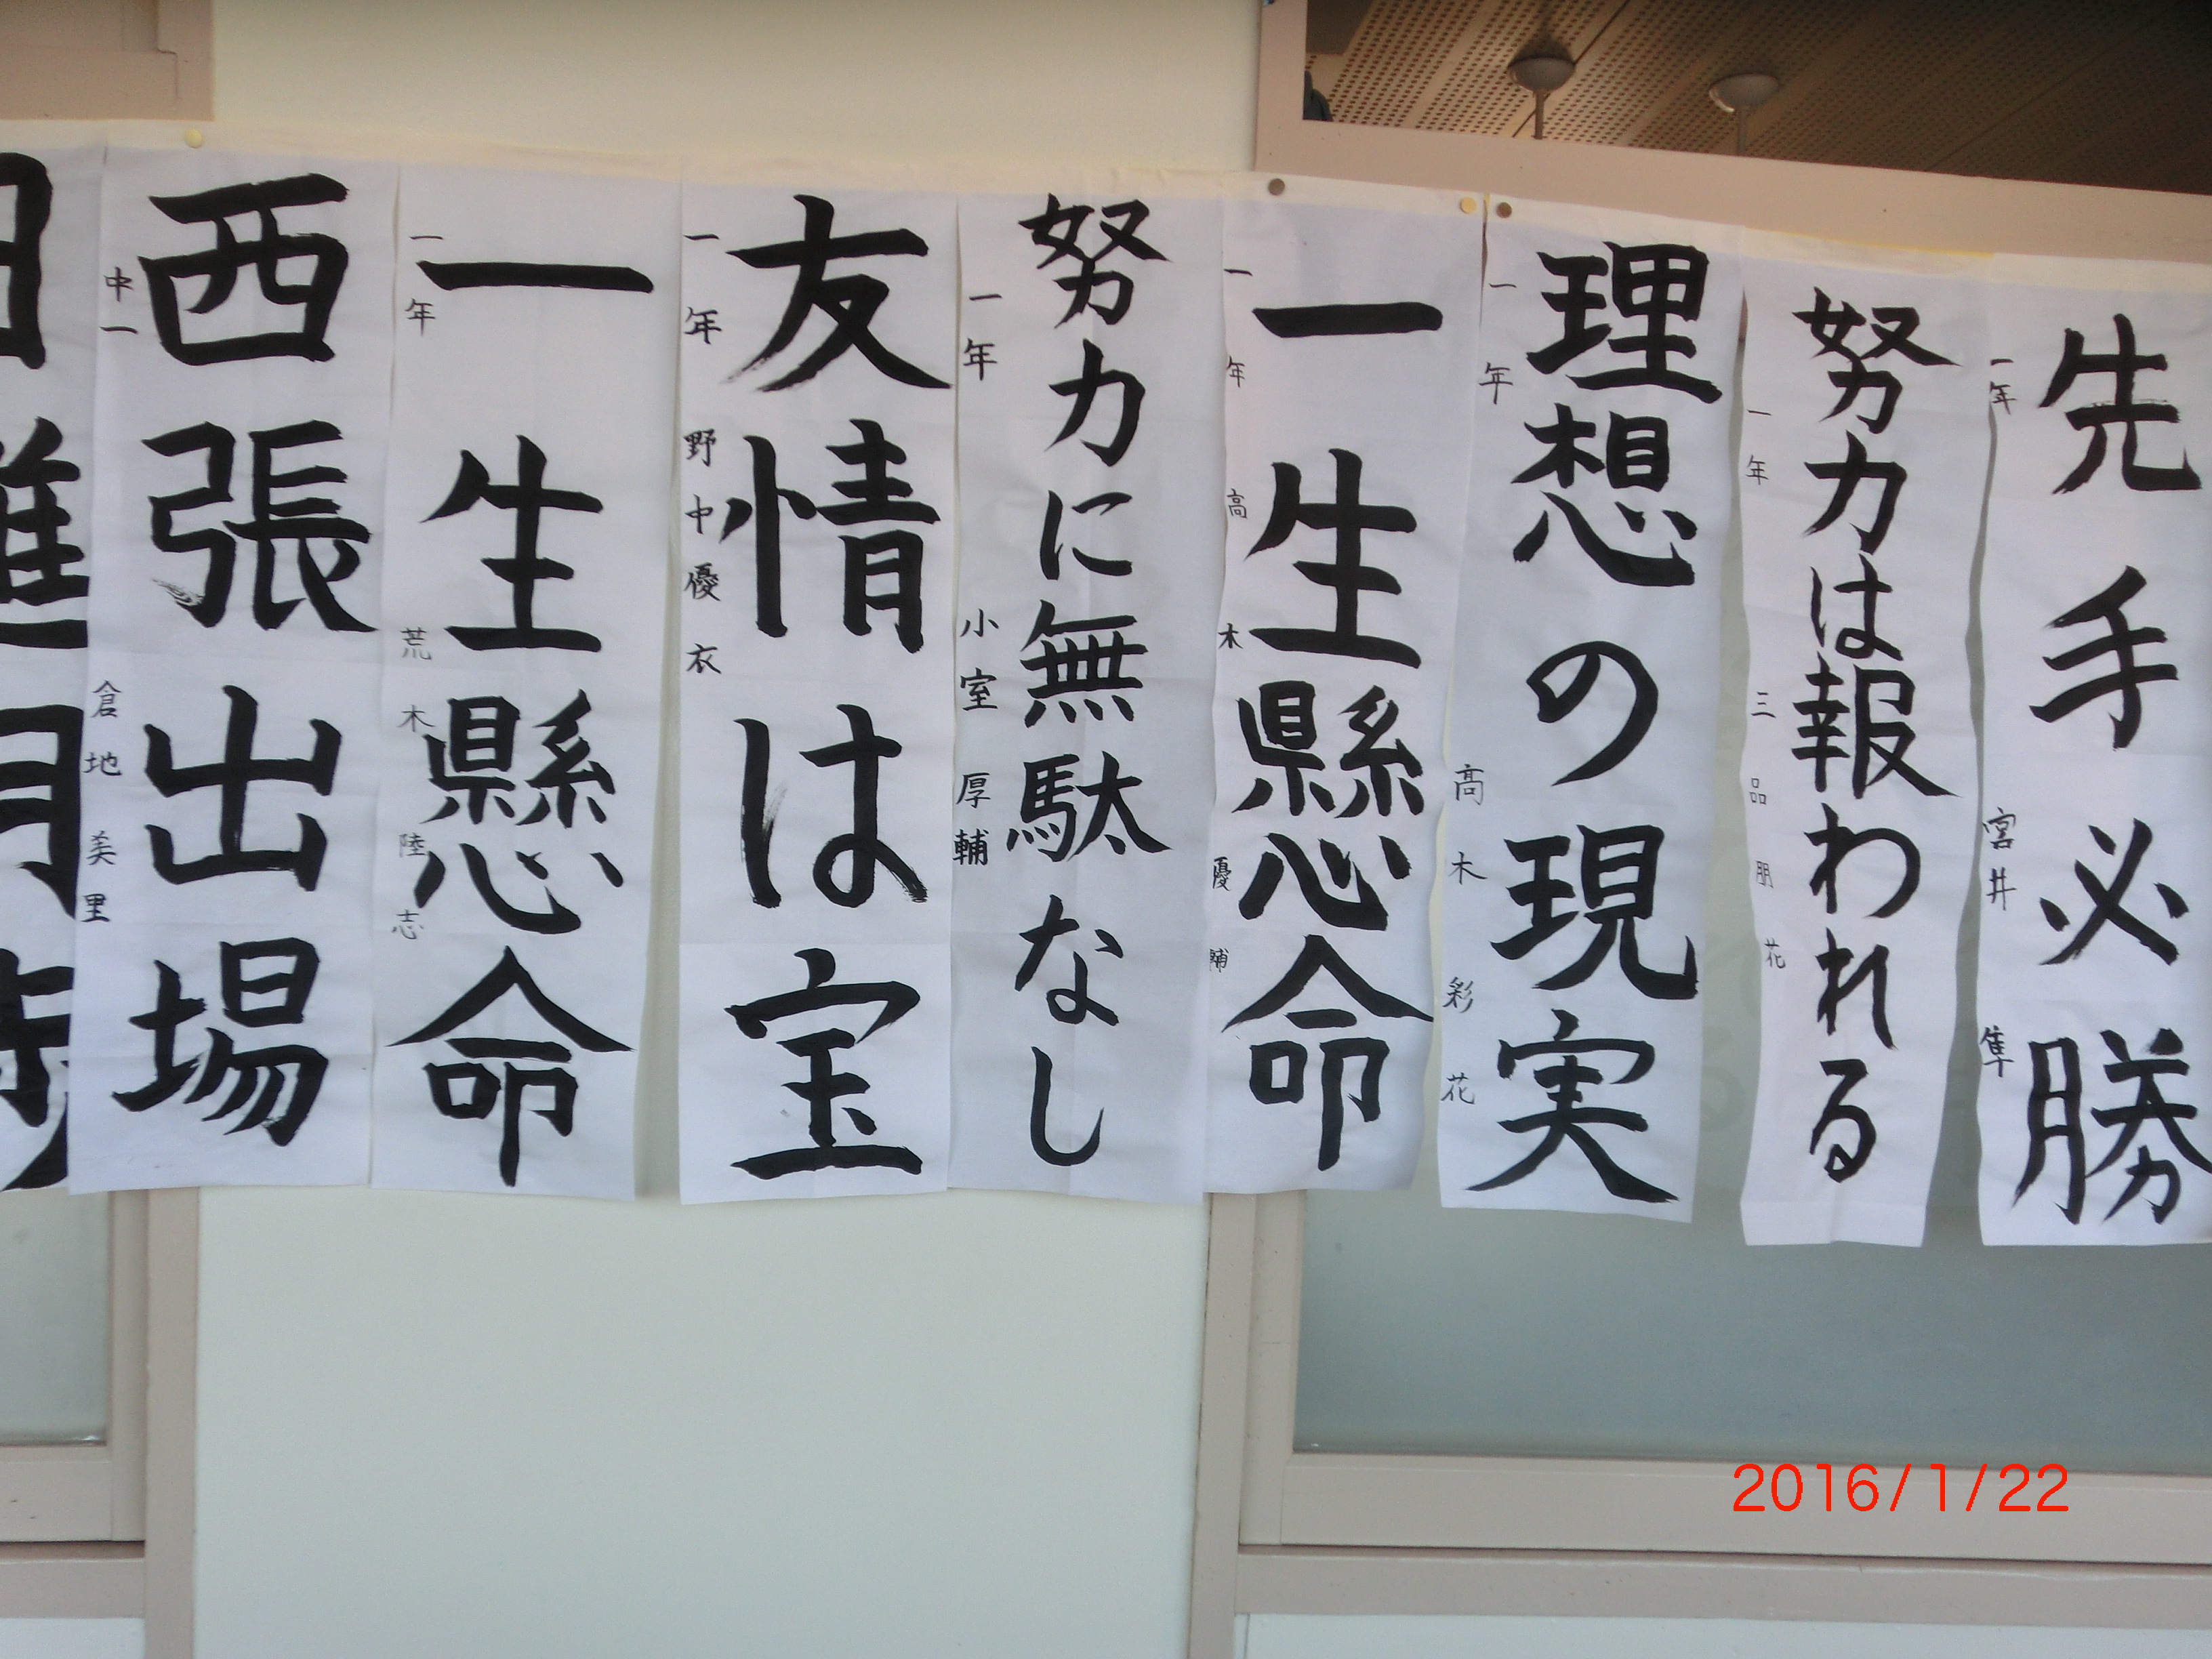 先手必勝
一年 宮井 隼
努力は報われる
一年 三品朋花
理想の現実
一年 高木彩花
一生懸命
一年 高木優輔
努力に無駄なし
一年 小室厚輔
友情は宝
一年 野中優衣
一生懸命
一年 荒木陸志
西張出場
中一 倉地美里
2016/1/22